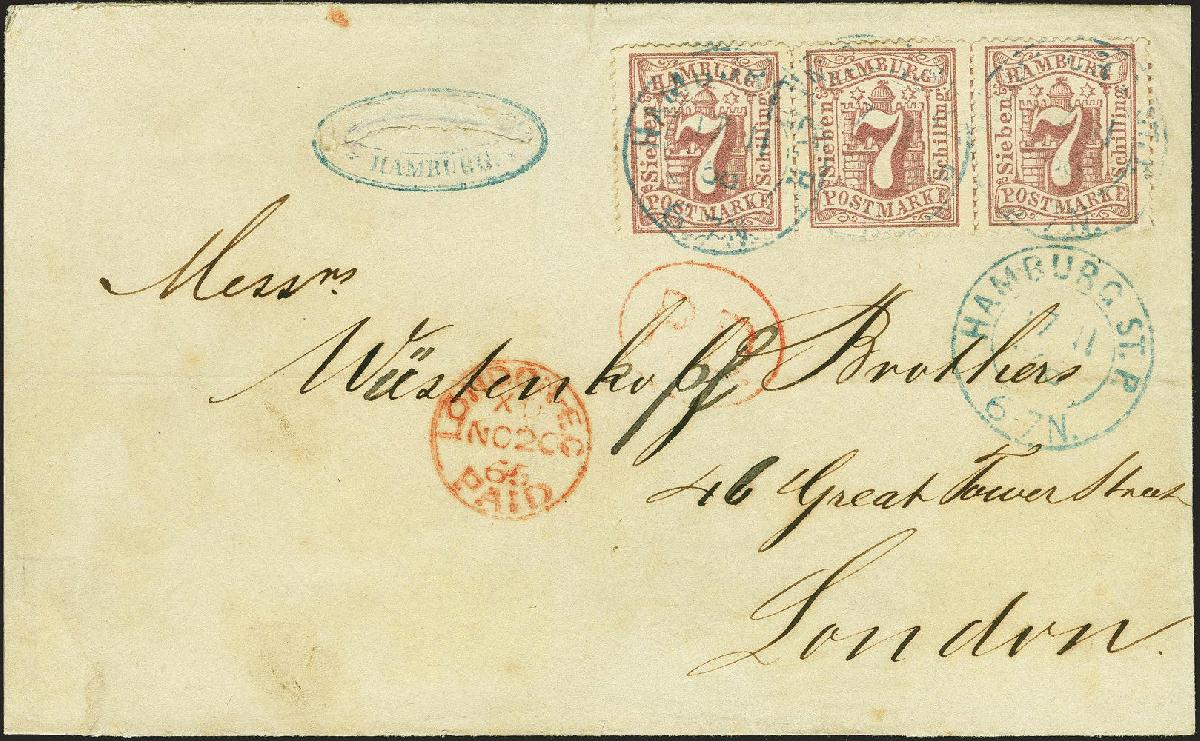 HAMBURG
Sieben
Schilling
7
POSTMARKE
HAMBURG
Sieben
Schilling
7
POSTMARKE
HAMBURG
Sieben
Schilling
7
POSTMARKE
HAMBURG.
Messrs
P D
HAMBURG ST. P.
17 11
6-7N.
Wüstenhoff Brothers
LONDON-E.C
NO20
PAID
46 Great Tower Street
London.